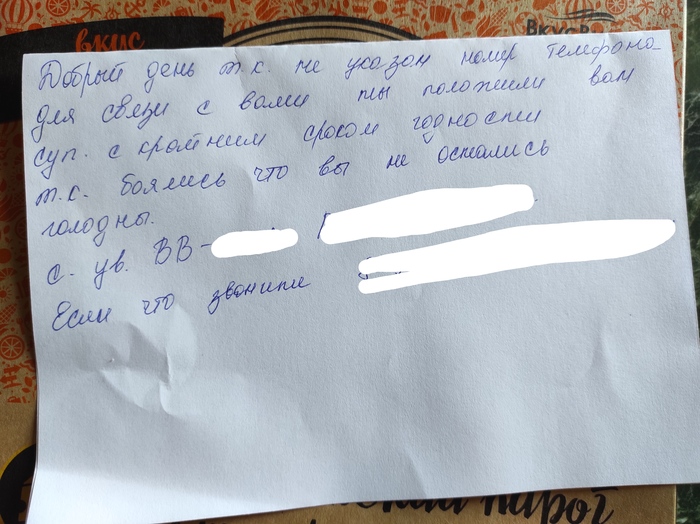 вкус
ВкусВ
Добрый день т.к. не указан номер телефона
для связи с вами мы положили вам
суп. с кратним сроком годности
т.к. боялись что вы не остались
голодны.
с. ув. ВВ-
Если что звонити
пирог